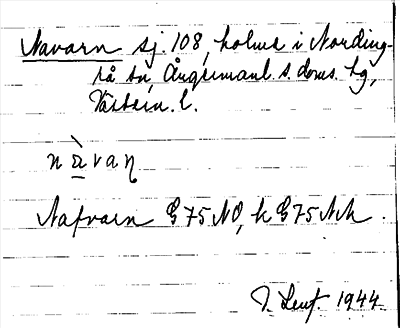 Navarn sj. 108, holme i Nording-
rå sn, Ångermanl. s. doms. lg,
Västern. l.
nàvaɳ
Nafvarn G75NO, k G75NA.
1944